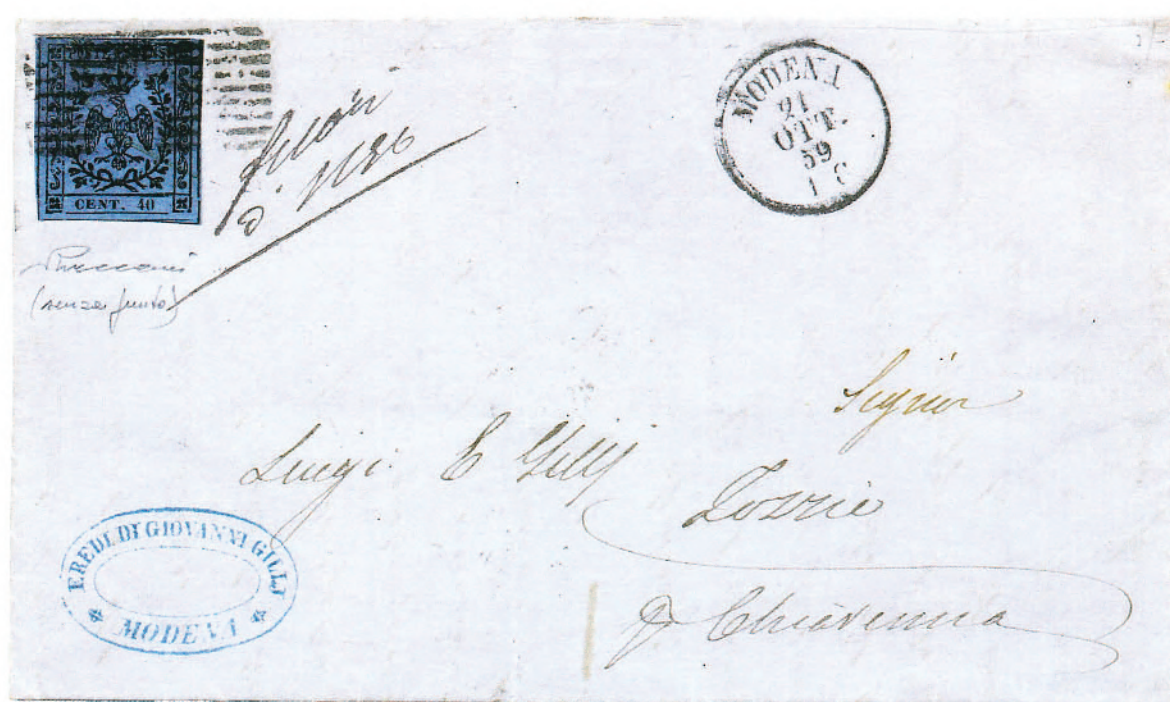 CENT. 40
MODENA
21
OTT.
59
(senza punto)
Signor
Luigi E Gilly
Zozzio
p Chiavenna
EREDI DI GIOVANNI GILLI
MODENA